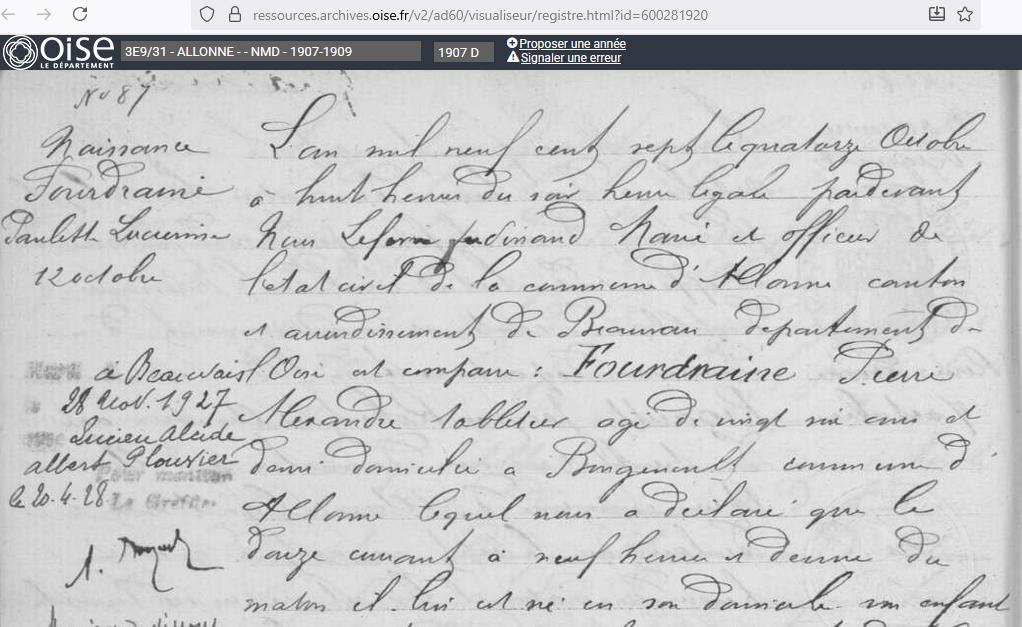 ressources.archives.oise.fr/v2/ad60/visualiseur/registre.html?id=600281920
oise
LE DÉPARTEMENT
3E9/31 - ALLONNE - - NMD - 1907-1909
1907 D
Proposer une année
Signaler une erreur
No 87
Naissance
Fourdraine
Paulette Lucienne
12 octobre
à Beauvais
28 nov. 1927
Lucien Alcide
albert Plouvier
le 20.4.28
Le Greffier
L'an mil neuf cent sept le quatorze Octobre
à huit heures du soir heure légale pardevant
Nous Ferdinand Maire et officier de
l'état civil de la commune d'Allonne canton
et arrondissement de Beauvais département de
l'Oise est comparu : Fourdraine Pierre
Alexandre tabletier agé de vingt six ans et
demi domicilié à Bongenoult commune d'
Allonne lequel nous a déclaré que le
douze courant à neuf heures et demie du
matin il lui est né en son domicile un enfant